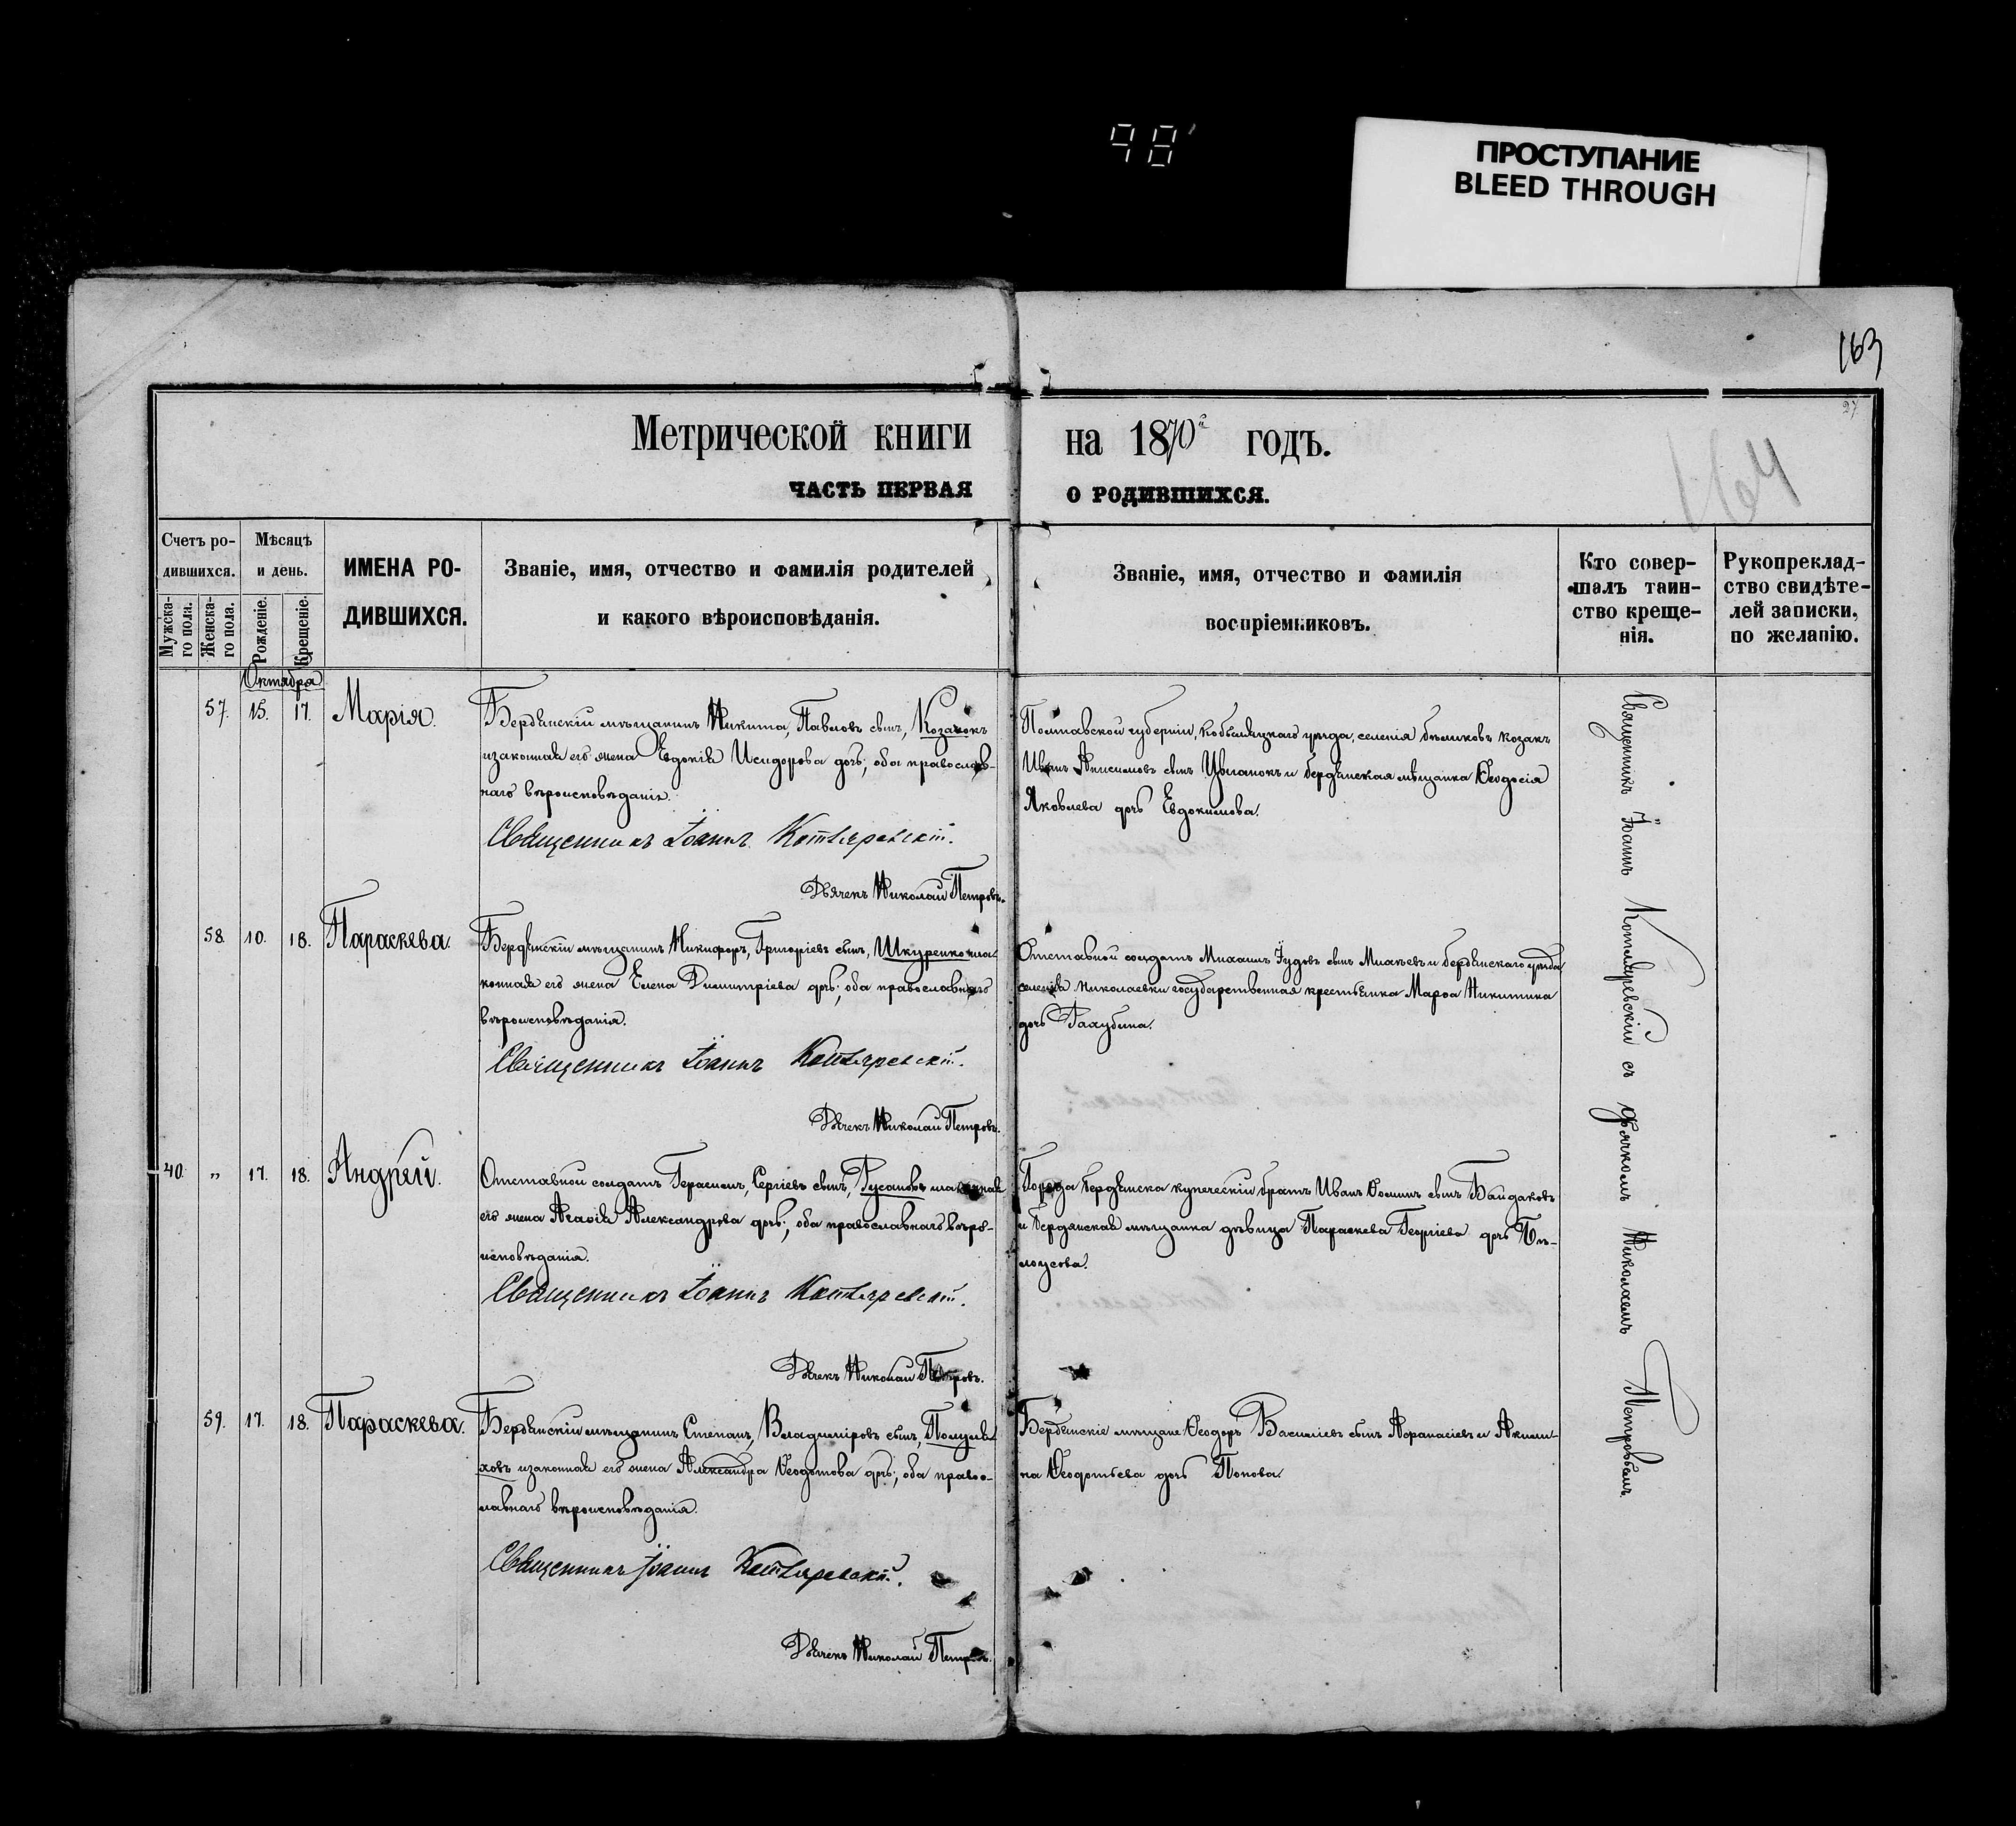 98
ПРОСТУПАНИЕ
BLEED THROUGH
163
27
164
Метрической книги на 1870й годъ.
ЧАСТЬ ПЕРВАЯ О РОДИВШИХСЯ.
Счетъ ро-
дившихся.
Мужска-
го пола.
Женска-
го пола.
Мѣсяцъ
и день.
Рожденіе.
Крещеніе.
ИМЕНА РО-
ДИВШИХСЯ.
Званіе, имя, отчество и фамилія родителей
и какого вѣроисповѣданія.
Званіе, имя, отчество и фамилія
воспріемниковъ.
Кто совер-
шалъ таин-
ство креще-
нія.
Рукоприклад-
ство свидѣте-
лей записки,
по желанію.
Октября
57. 15. 17. Марія.
Бердянскій мѣщанинъ Никита, Павловъ сынъ, Козачокъ
и законная его жена Евдокія Исидорова дочь; оба православ-
наго вѣроисповѣданія.
Священникъ Іоаннъ Котляревскій.
Дьячекъ Николай Петровъ.
Полтавской губерніи, Кобыляцкаго уѣзда, селенія Бѣликовъ козакъ
Иванъ Анисимовъ сынъ Цыганокъ и бердянская мѣщанка Ѳеодосія
Яковлева дочь Евдокимова.
58. 10. 18. Параскева.
Бердянскій мѣщанинъ Никифоръ, Григоріевъ сынъ, Шкуренко и за-
конная его жена Елена Димитріева дочь; оба православнаго
вѣроисповѣданія.
Священникъ Іоаннъ Котляревскій.
Дьячекъ Николай Петровъ.
Отставной солдатъ Михаилъ Іудовъ сынъ и бердянскаго уѣзда
селенія Николаевки государственная крестьянка Марѳа Никитина
дочь
40. „ 17. 18. Андрей.
Отставной солдатъ Герасимъ, Сергіевъ сынъ, Русановъ и законная
его жена Агафія Александрова дочь; оба православнаго вѣро-
исповѣданія.
Священникъ Іоаннъ Котляревскій.
Дьячекъ Николай Петровъ.
Города Бердянска купеческій братъ Иванъ Ѳоминъ сынъ Байдаковъ
и бердянская мѣщанка дѣвица Параскева Георгіева дочь Бѣ-
лоусова.
59. 17. 18. Параскева.
Бердянскій мѣщанинъ Степанъ, Владиміровъ сынъ,
и законная его жена Александра Ѳеодотова дочь; оба право-
славнаго вѣроисповѣданія.
Священникъ Іоаннъ Котляревскій.
Дьячекъ Николай Петровъ.
Бердянскіе мѣщане Ѳеодоръ Василіевъ сынъ Афанасіевъ и
Ѳеодотьева дочь Попова.
Священникъ Іоаннъ Котляревскій съ дьячкомъ Николаемъ Петровымъ.